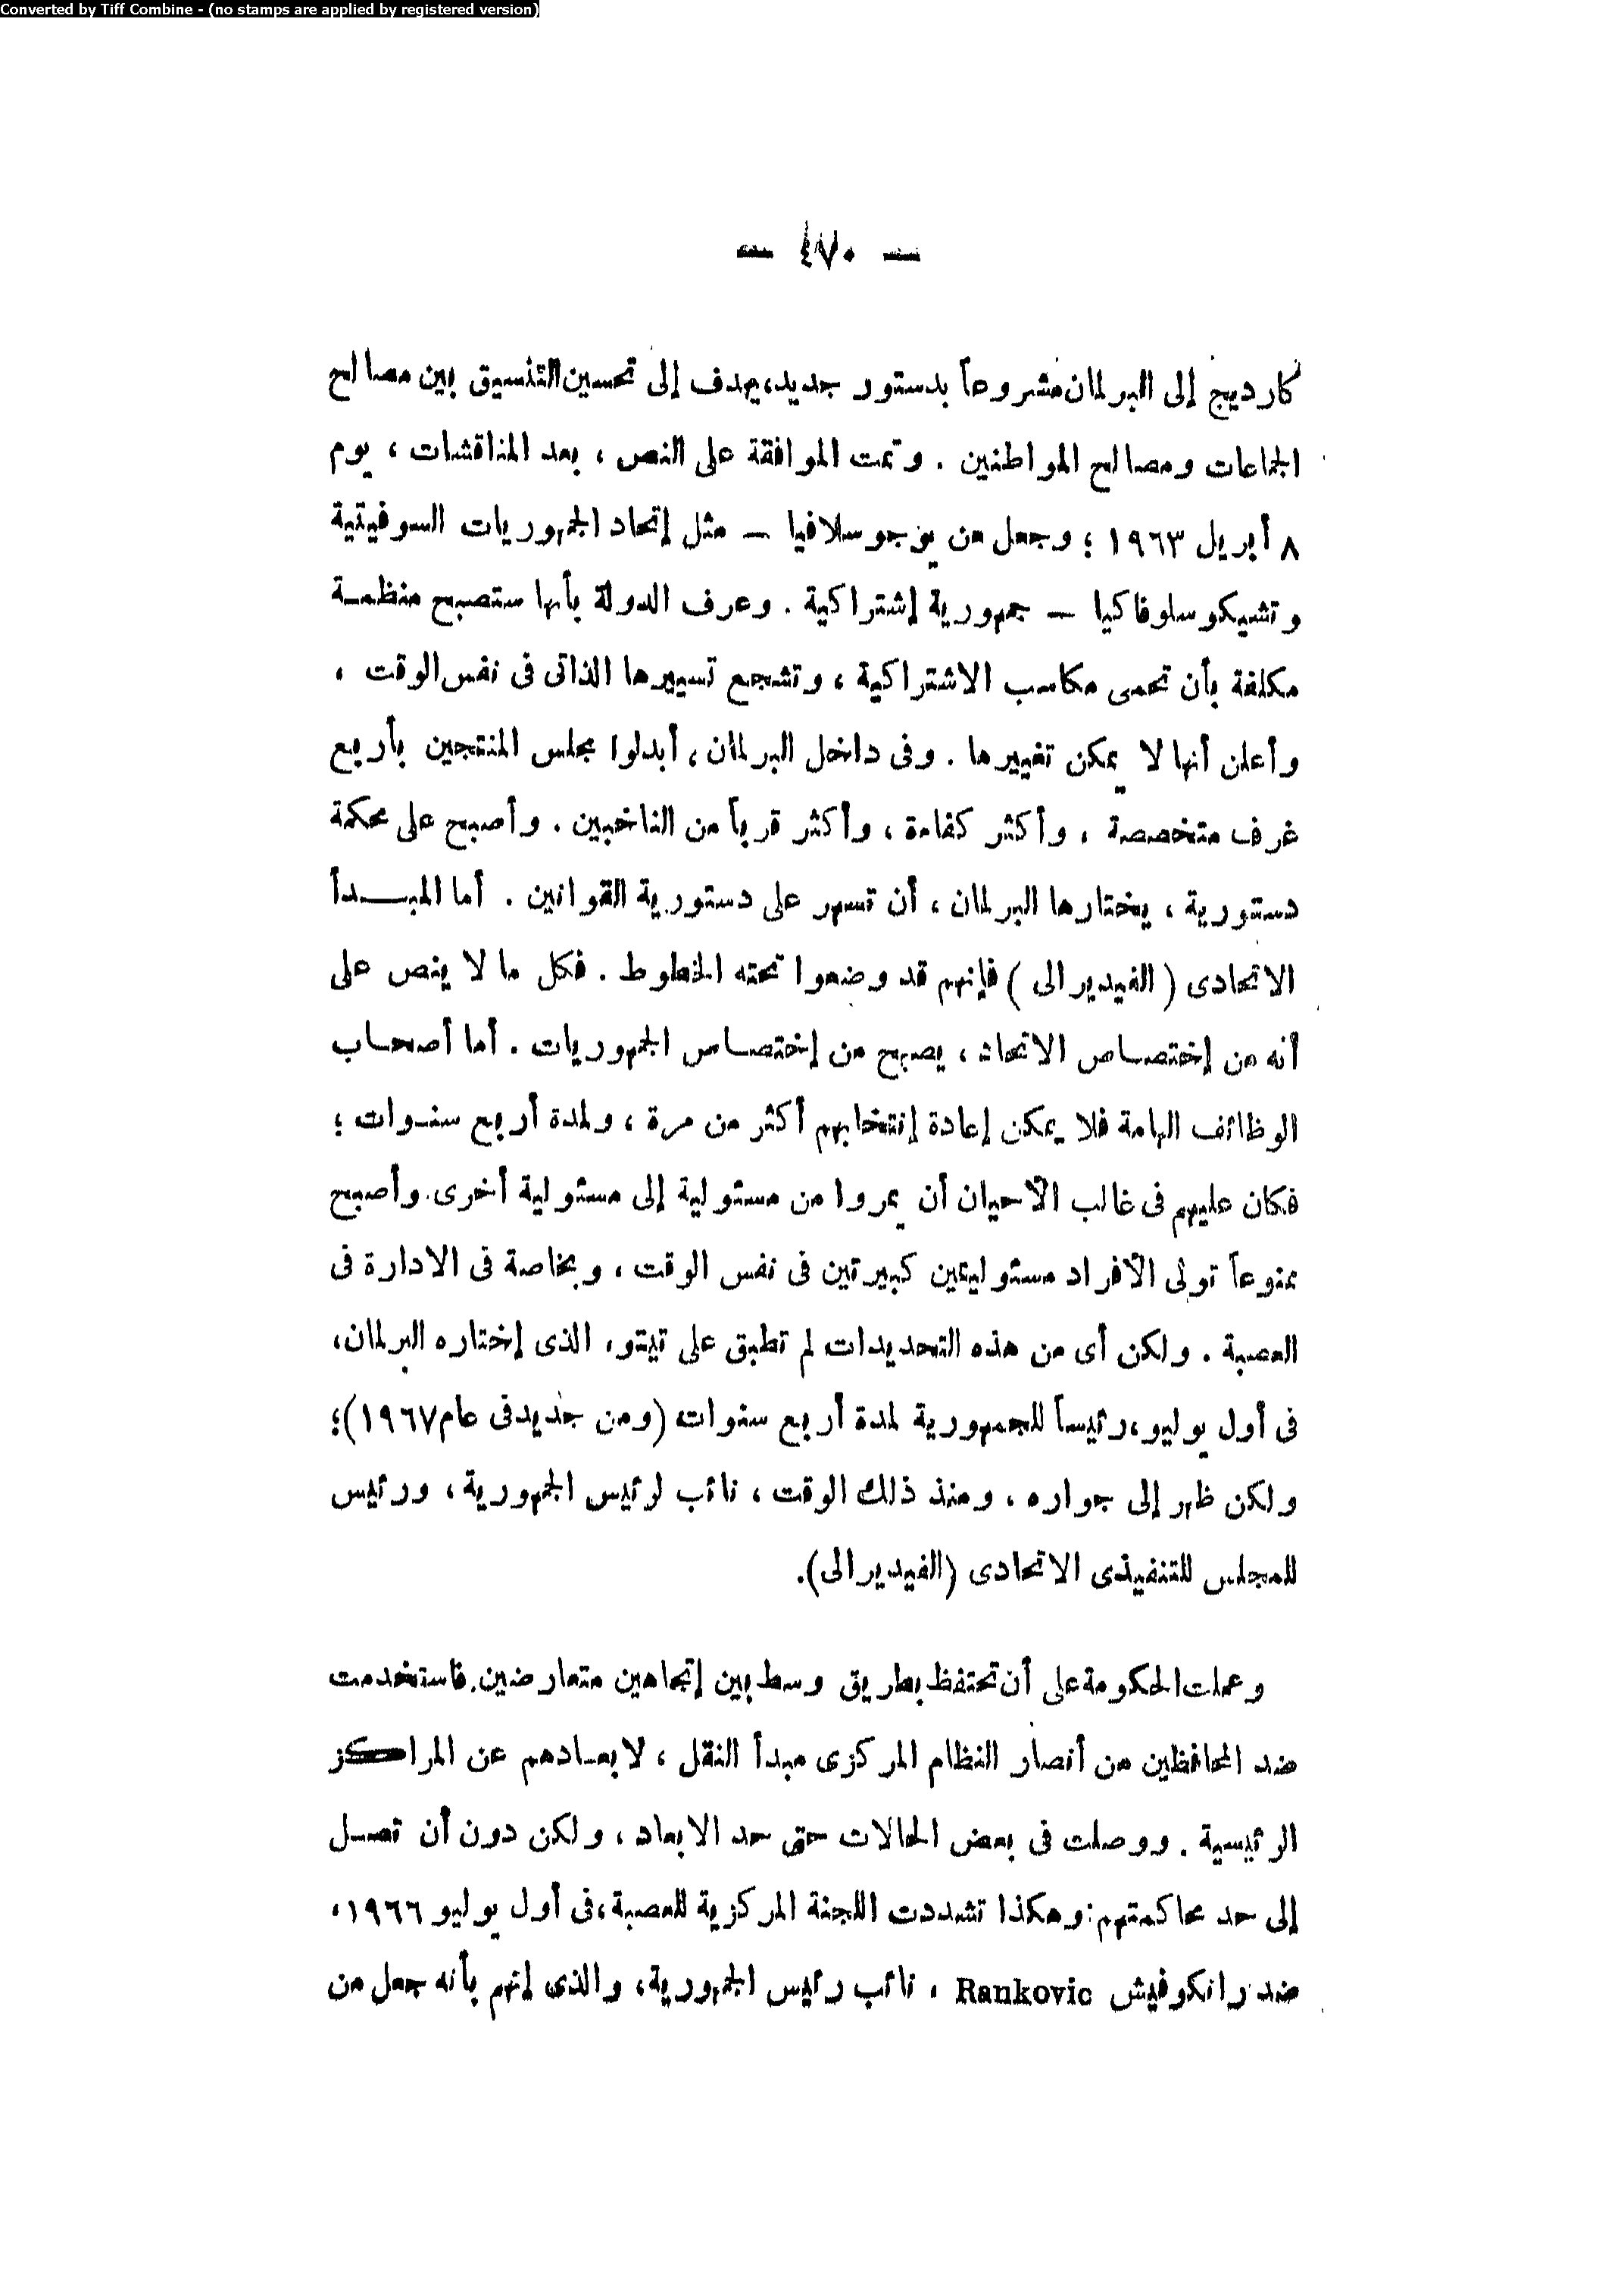 Converted by Tiff Combine - (no stamps are applied by registered version)
— ٤٧٠ —
كارديج إلى البرلمان مشروعاً بدستور جديد، يهدف إلى تحسين التنسيق بين مصالح
الجماعات ومصالح المواطنين . وتمت الموافقة على النص ، بعد المناقشات ، يوم
٨ أبريل ١٩٦٣ ؛ وجعل من يوجوسلافيا — مثل إتحاد الجمهوريات السوفيتية
وتشيكوسلوفاكيا — جمهورية إشتراكية . وعرف الدولة بأنها ستصبح منظمة
مكلفة بأن تحمى مكاسب الاشتراكية ، وتشجع تسييرها الذاتى فى نفس الوقت ،
وأعلن أنها لا يمكن تغييرها . وفى داخل البرلمان ، أبدلوا مجلس المنتجين بأربع
غرف متخصصة ، وأكثر كفاءة ، وأكثر قرباً من الناخبين . وأصبح على محكمة
دستورية ، يختارها البرلمان ، أن تسهر على دستورية القوانين . أما المبدأ
الاتحادى ( الفيديرالى ) فإنهم قد وضعوا تحته الخطوط . فكل ما لا ينص على
أنه من إختصاص الاتحاد ، يصبح من إختصاص الجمهوريات . أما أصحاب
الوظائف الهامة فلا يمكن إعادة إنتخابهم أكثر من مرة ، ولمدة أربع سنوات ؛
فكان عليهم فى غالب الأحيان أن يمروا من مسئولية إلى مسئولية أخرى. وأصبح
ممنوعاً تولى الأفراد مسئوليتين كبيرتين فى نفس الوقت ، وبخاصة فى الادارة فى
العصبة . ولكن أى من هذه التحديدات لم تطبق على تيتو، الذى إختاره البرلمان،
فى أول يوليو، رئيساً للجمهورية لمدة أربع سنوات (ومن جديد فى عام ١٩٦٧)؛
ولكن ظهر إلى جواره ، ومنذ ذلك الوقت ، نائب لرئيس الجمهورية ، ورئيس
للمجلس للتنفيذى الاتحادى (الفيديرالى).
وعملت الحكومة على أن تحتفظ بطريق وسط بين إتجاهين متعارضين. فاستخدمت
ضد المحافظين من أنصار النظام المركزى مبدأ النقل ، لابعادهم عن المراكز
الرئيسية . ووصلت فى بعض الحالات حتى حد الابعاد ، ولكن دون أن تصل
إلى حد محاكمتهم: وهكذا تشددت اللجنة المركزية للعصبة، فى أول يوليو ١٩٦٦،
ضد رانكوفيش Rankovic ، نائب رئيس الجمهورية، والذى إتهم بأنه جعل من